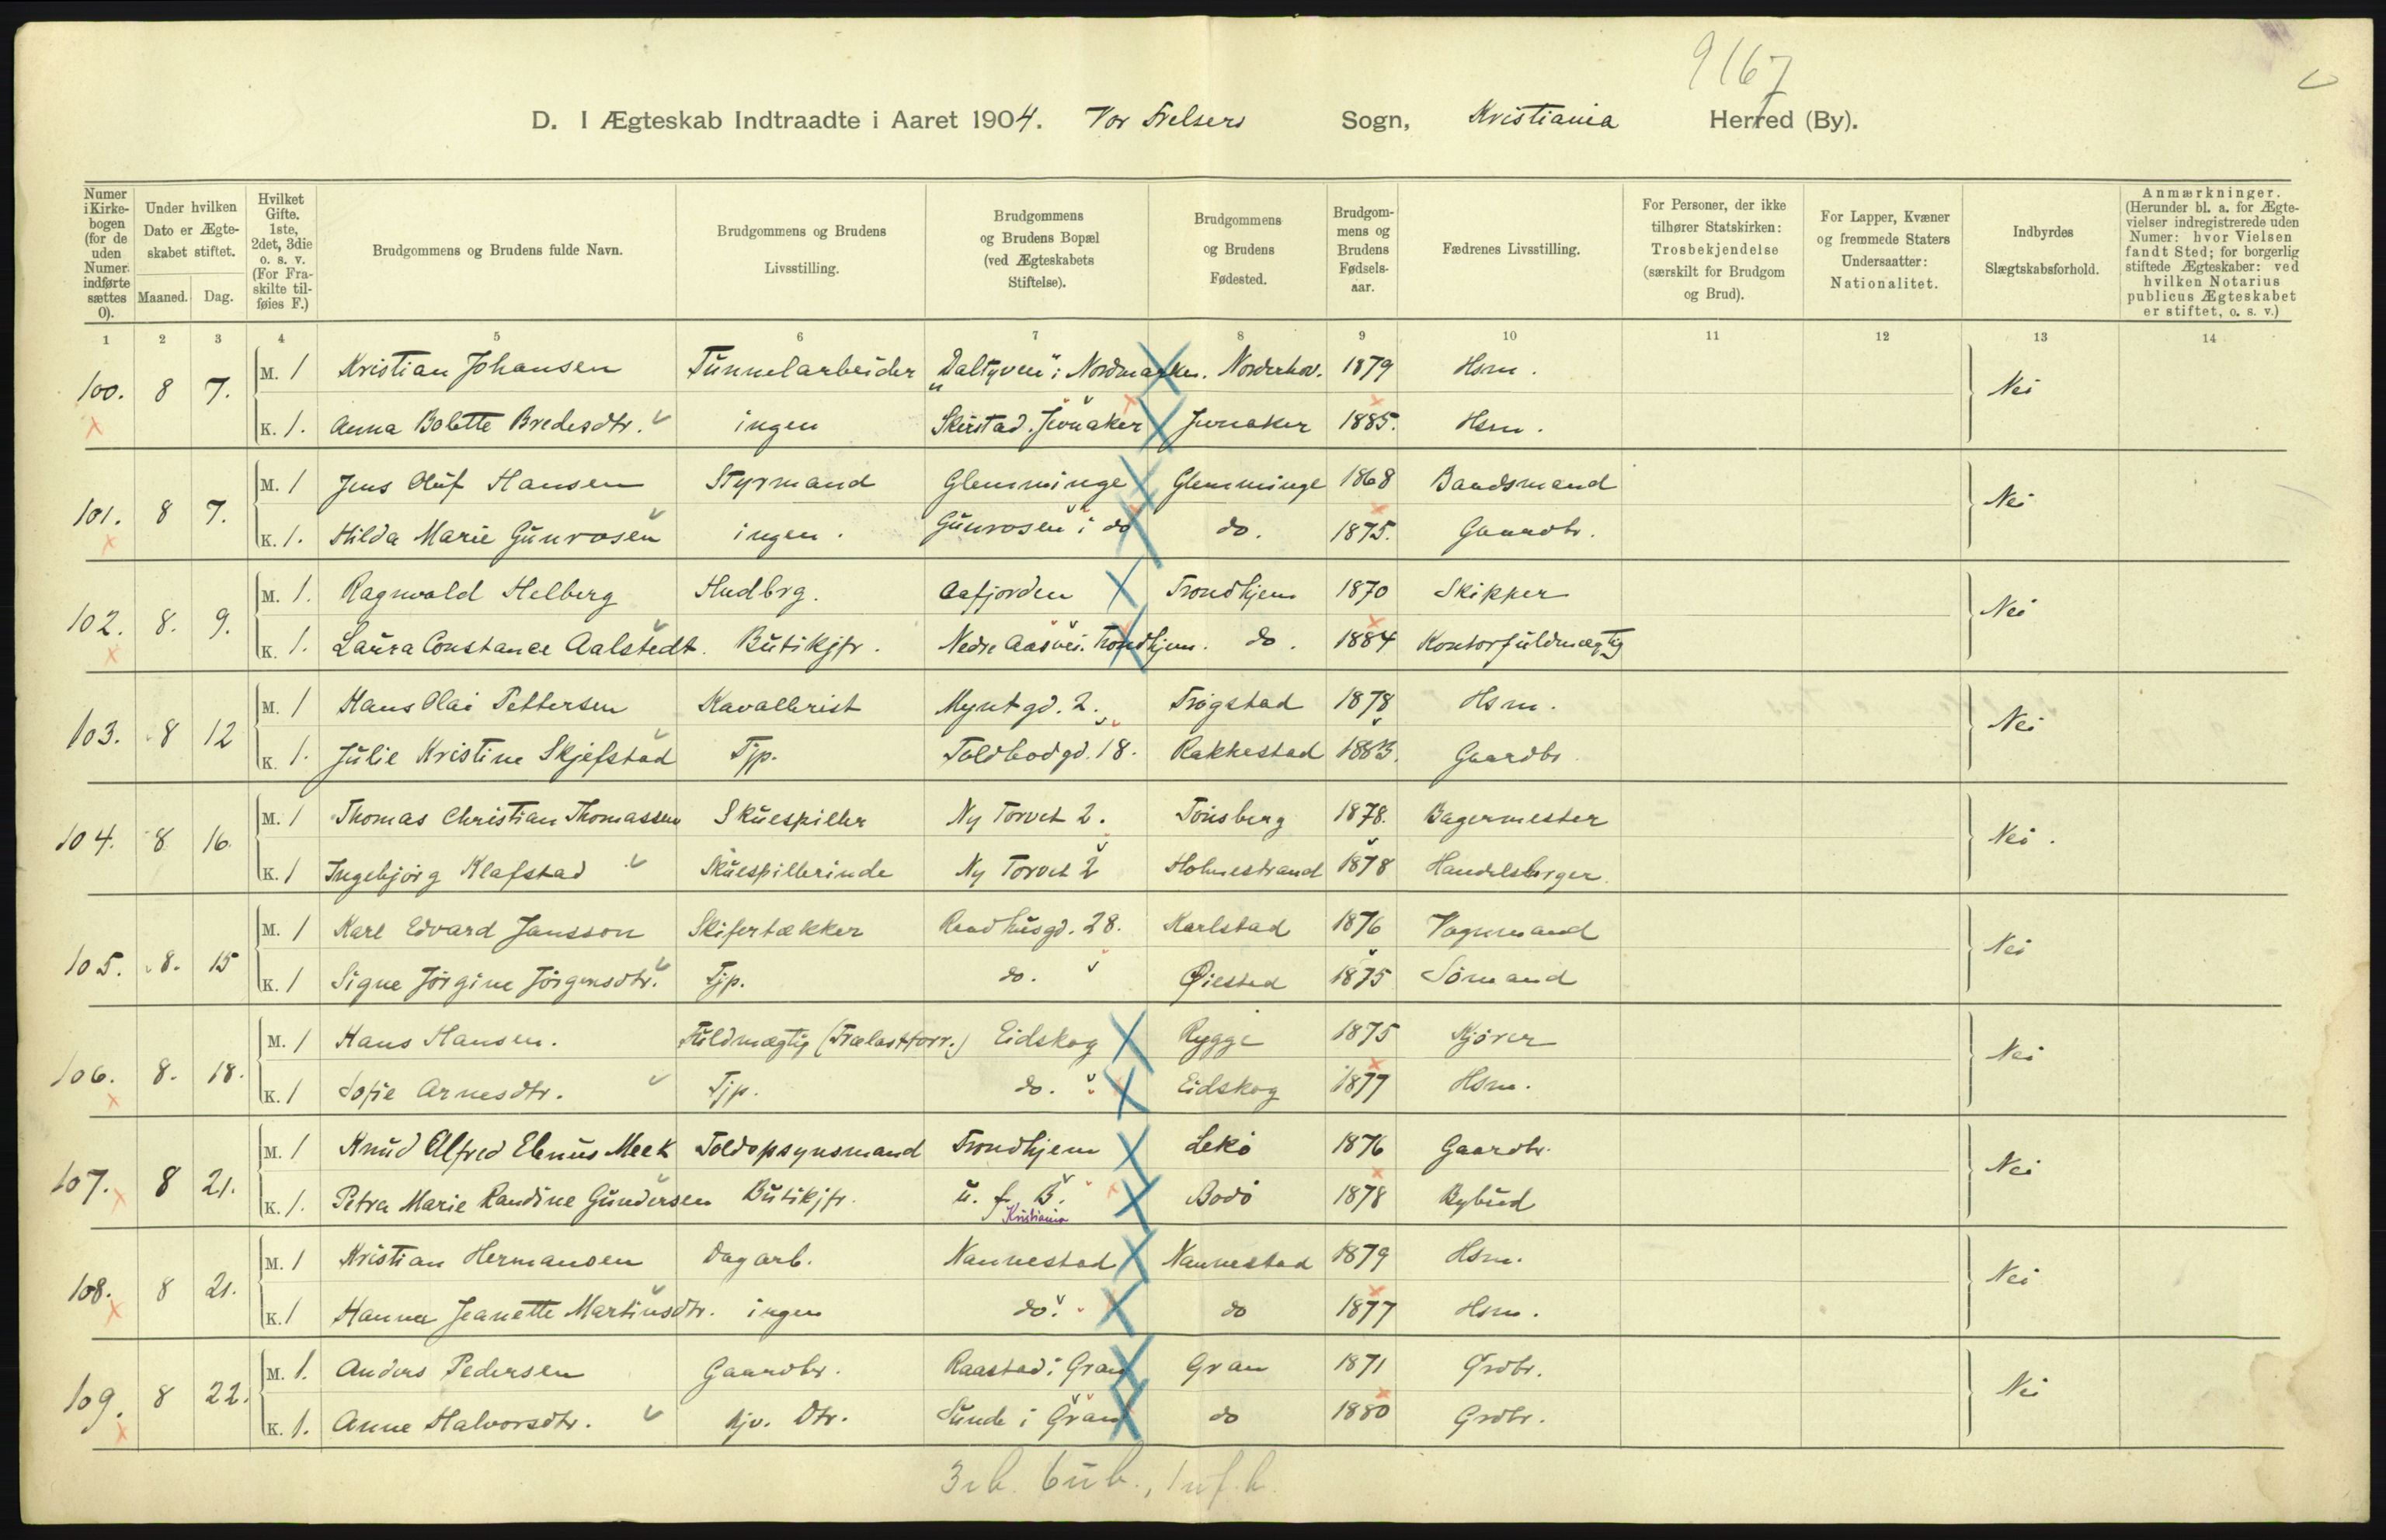 9167
D. I Ægteskab Indtraadte i Aaret 1904. Vor Frelsers Sogn, Kristiania Herred (By).
Numer i Kirkebogen (for de uden Numer indførte sættes 0).
Under hvilken Dato er Ægteskabet stiftet.
Maaned. Dag.
Hvilket Gifte. 1ste, 2det, 3die o. s. v. (For Fraskilte tilføies F.)
Brudgommens og Brudens fulde Navn.
Brudgommens og Brudens Livsstilling.
Brudgommens og Brudens Bopæl (ved Ægteskabets Stiftelse).
Brudgommens og Brudens Fødested.
Brudgommens og Brudens Fødselsaar.
Fædrenes Livsstilling.
For Personer, der ikke tilhører Statskirken: Trosbekjendelse (særskilt for Brudgom og Brud).
For Lapper, Kvæner og fremmede Staters Undersaatter: Nationalitet.
Indbyrdes Slægtskabsforhold.
Anmærkninger. (Herunder bl. a. for Ægtevielser indregistrerede uden Numer: hvor Vielsen fandt Sted; for borgerlig stiftede Ægteskaber: ved hvilken Notarius publicus Ægteskabet er stiftet, o. s. v.)
1 2 3 4 5 6 7 8 9 10 11 12 13 14
100. 8 7. M. 1 Kristian Johansen Tunnelarbeider i Nordmarken. Norderhov. 1879 Hsm. Nei
K. 1. Anna Bolette Bredesdtr. ingen Skirstad. Jevnaker Jevnaker 1885. Hsm.
101. 8 7. M. 1 Jens Oluf Hansen Styrmand Glemminge Glemminge 1868 Baadsmand Nei
K. 1. Hilda Marie Gunrosen ingen. Gunrosen i do do. 1875. Gaardbr.
102. 8. 9. M. 1. Ragnvald Helberg Hndbrg. Aafjorden Trondhjem 1870 Skipper Nei
K. 1. Laura Constance Aalstedt. Butikjfr. Nedre Aasvei. Trondhjem. do. 1884 Kontorfuldmægtig
103. 8 12 M. 1 Hans Olai Pettersen Kavallerist Myntgd. 2. Trøgstad 1878 Hsm. Nei
K. 1. Julie Kristine Skjefstad Tjp. Toldbodgd. 18. Rakkestad 1883. Gaardbr
104. 8 16. M. 1 Thomas Christian Thomassen Skuespiller Ny Torvet 2. Tønsberg 1878. Bagermester Nei.
K. 1 Ingebjørg Klafstad Skuespillerinde Ny Torvet 2 Holmestrand 1878 Handelsborger.
105. 8. 15 M. 1 Karl Edvard Jansson Skifertækker Raadhusgd. 28. Karlstad 1876 Vognmand Nei
K. 1 Signe Jørgine Jørgensdtr. Tjp. do. Øiestad 1875 Sømand
106. 8. 18. M. 1 Hans Hansen. Fuldmægtig (Trælastforr.) Eidskog Rygge 1875 Kjører Nei
K. 1 Sofie Arnesdtr. Tjp. do. Eidskog 1877 Hsm.
107. 8 21. M. 1 Knud Alfred Elenus Meek Toldopsynsmand Trondhjem Lekø 1876 Gaardbr. Nei
K. 1. Petra Marie Randine Gundersen Butikjfr. u. f. B. Bodø 1878 Bybud
Kristiania
108. 8 21. M. 1 Kristian Hermansen Dagarb. Nannestad Nannestad 1879 Hsm. Nei
K. 1 Hanna Jeanette Martinsdtr. ingen do. do 1877 Hsm.
109. 8 22. M. 1. Anders Pedersen Gaardbr. Raastad i Gran Gran 1871 Grdbr. Nei
K. 1. Anne Halvorsdtr. Hjv. Dtr. Sunde i Gran do 1880 Grdbr.